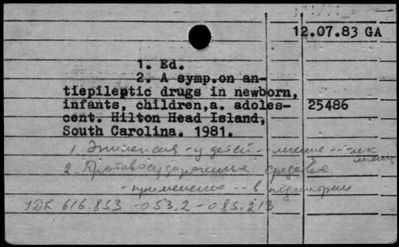 12.07.83 GA
1. Ed.
2. A symp.on an-
tiepileptic drugs in newborn,
infants, children,a. adoles-
cent. Hilton Head Island,
South Carolina. 1981.
25486
1. Эпилепсия - у детей - лечение -
2. Противосудорожные средства
- применение - в педиатрии
УДК 616.853 - 053.2 - 085.213